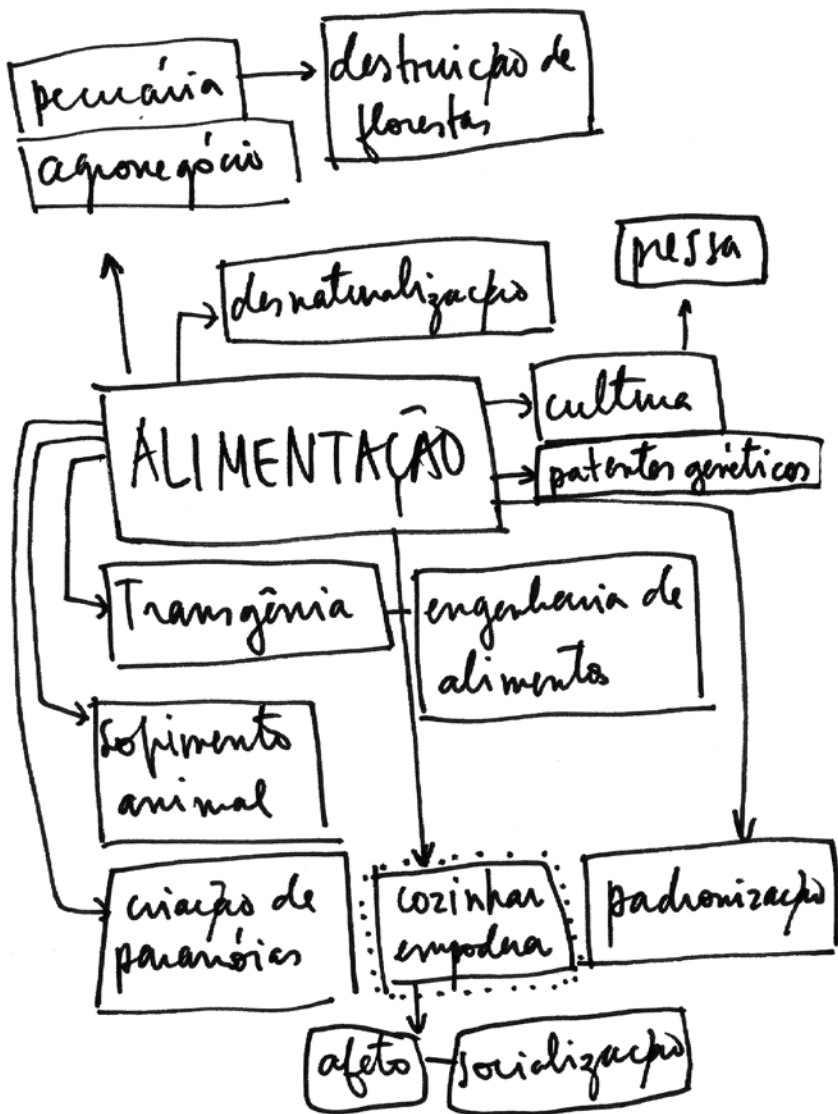 pecuária
destruição de
florestas
agronegócio
pressa
desnaturalização
cultura
ALIMENTAÇÃO
patentes genéticas
Transgênia
engenharia de
alimentos
sofrimento
animal
criação de
paranóias
cozinhar
empodera
padronização
afeto
socialização